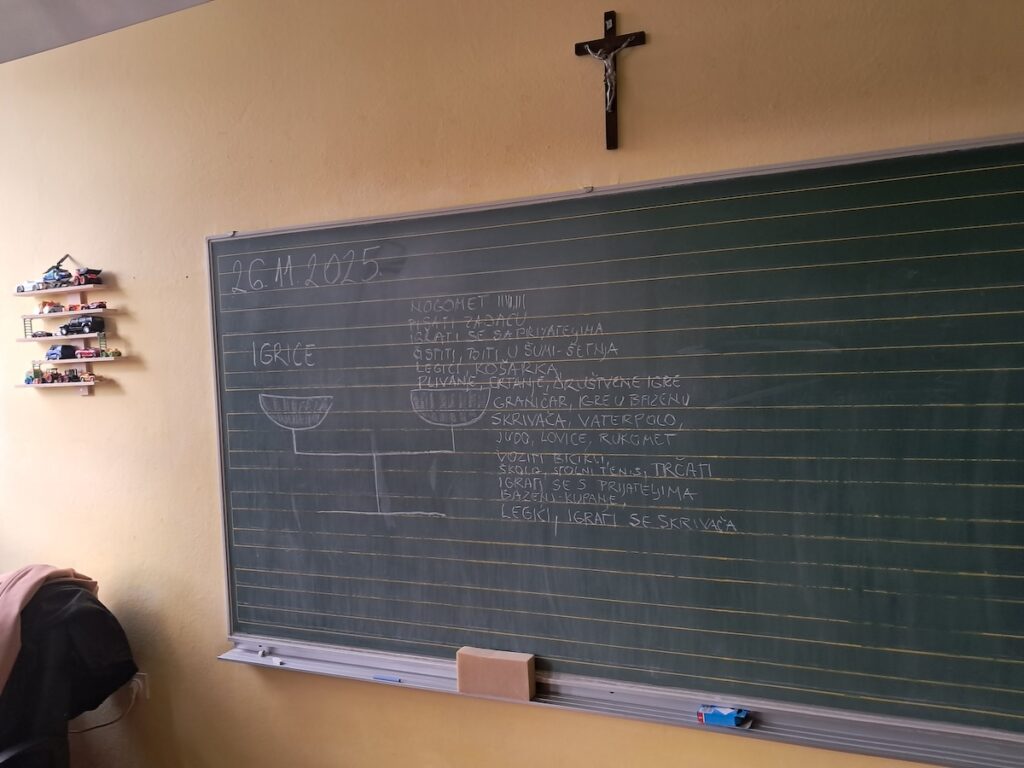 26.11.2025.
IGRICE
NOGOMET
PISATI ZADAĆU
IGRATI SE SA PRIJATELJIMA
ČISTITI, IĆI U ŠUMI-ŠETNJA
LEGIĆI, KOŠARKA,
PLIVANJE, CRTANJE, DRUŠTVENE IGRE
GRANIČAR, IGRE U BAZENU
SKRIVAČA, VATERPOLO,
JUDO, LOVICE, RUKOMET
VOZIM BICIKL,
ŠKOLA, STOLNI TENIS, TRČATI
IGRATI SE S PRIJATELJIMA
BAZENU-KUPANJE,
LEGIĆI, IGRATI SE SKRIVAČA